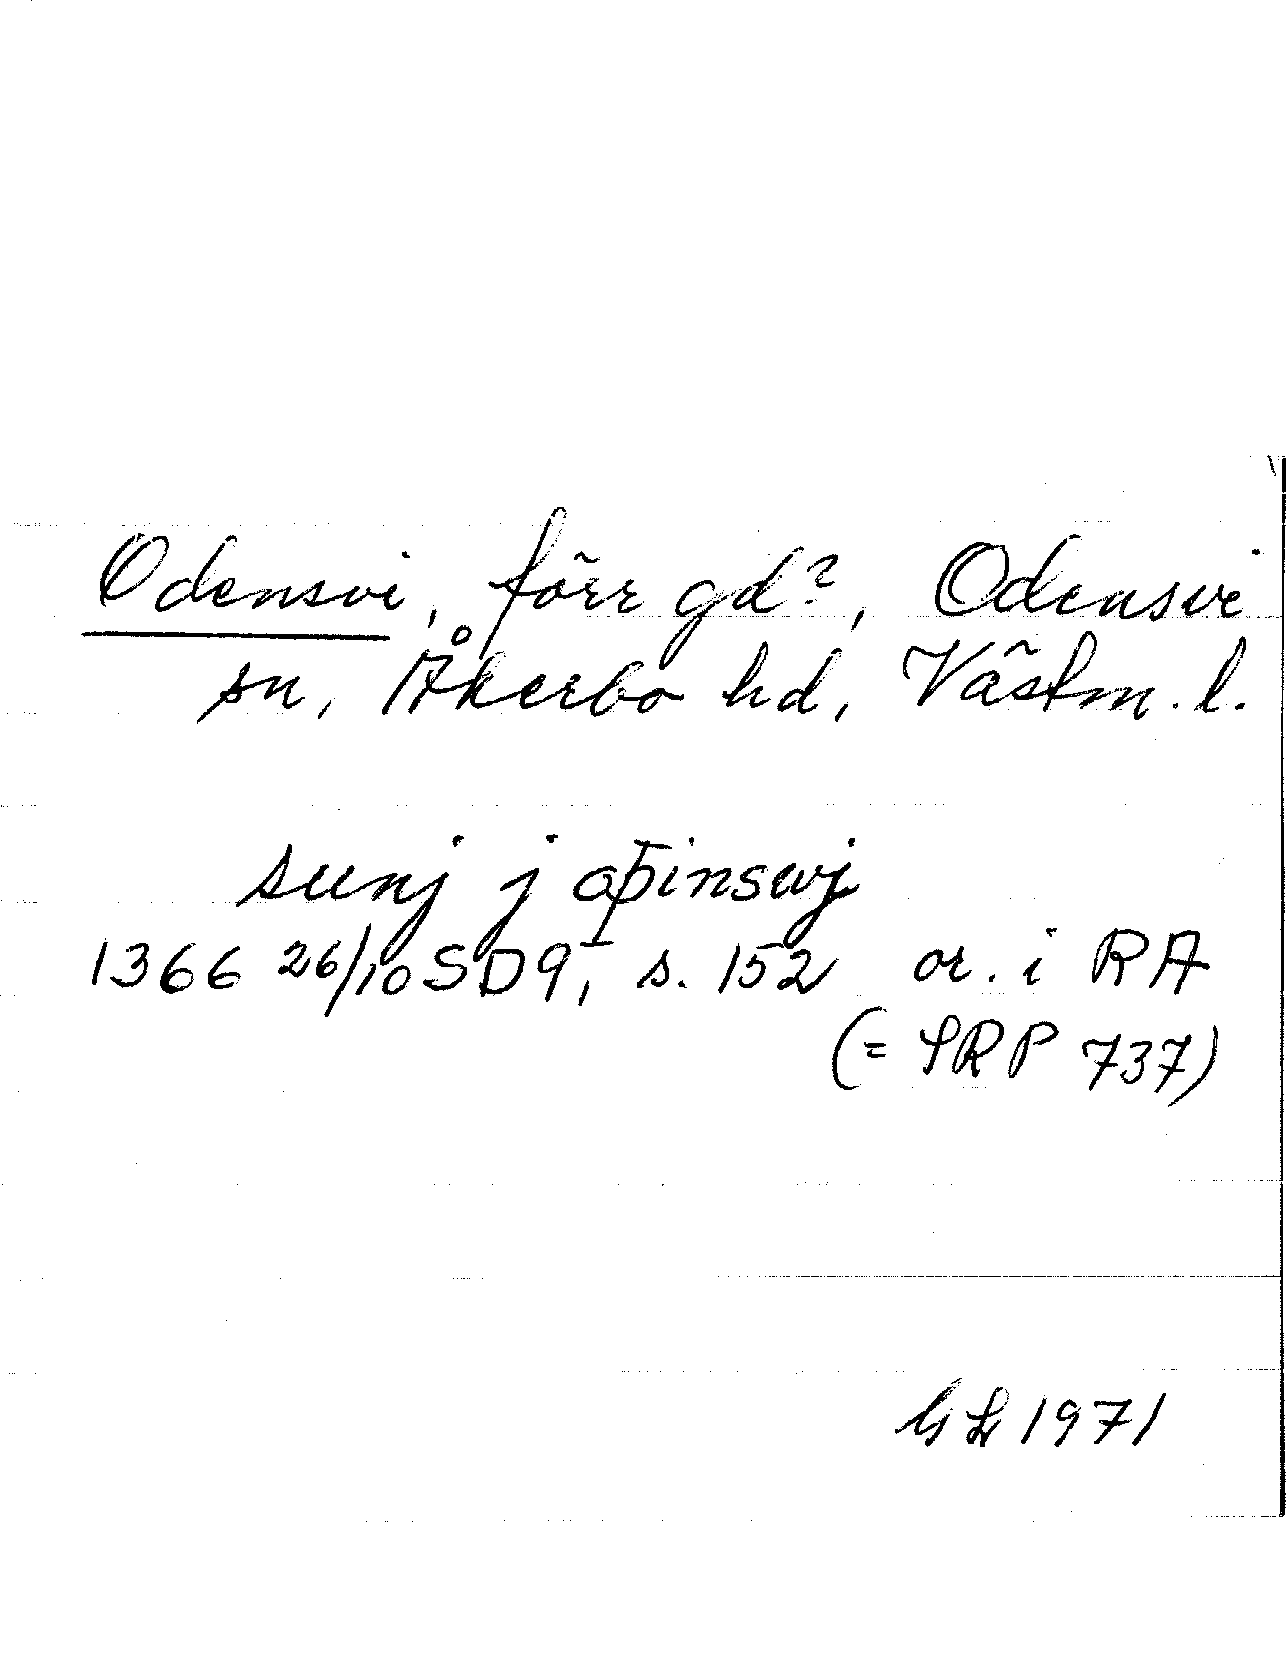 Odensvi, förr gd?, Odensvi
sn, Åkerbo hd, Västm. l.
sunj j oþinswj
1366 26/10 SD9, s. 152 or. i RA
(= SRP 737)
GL 1971